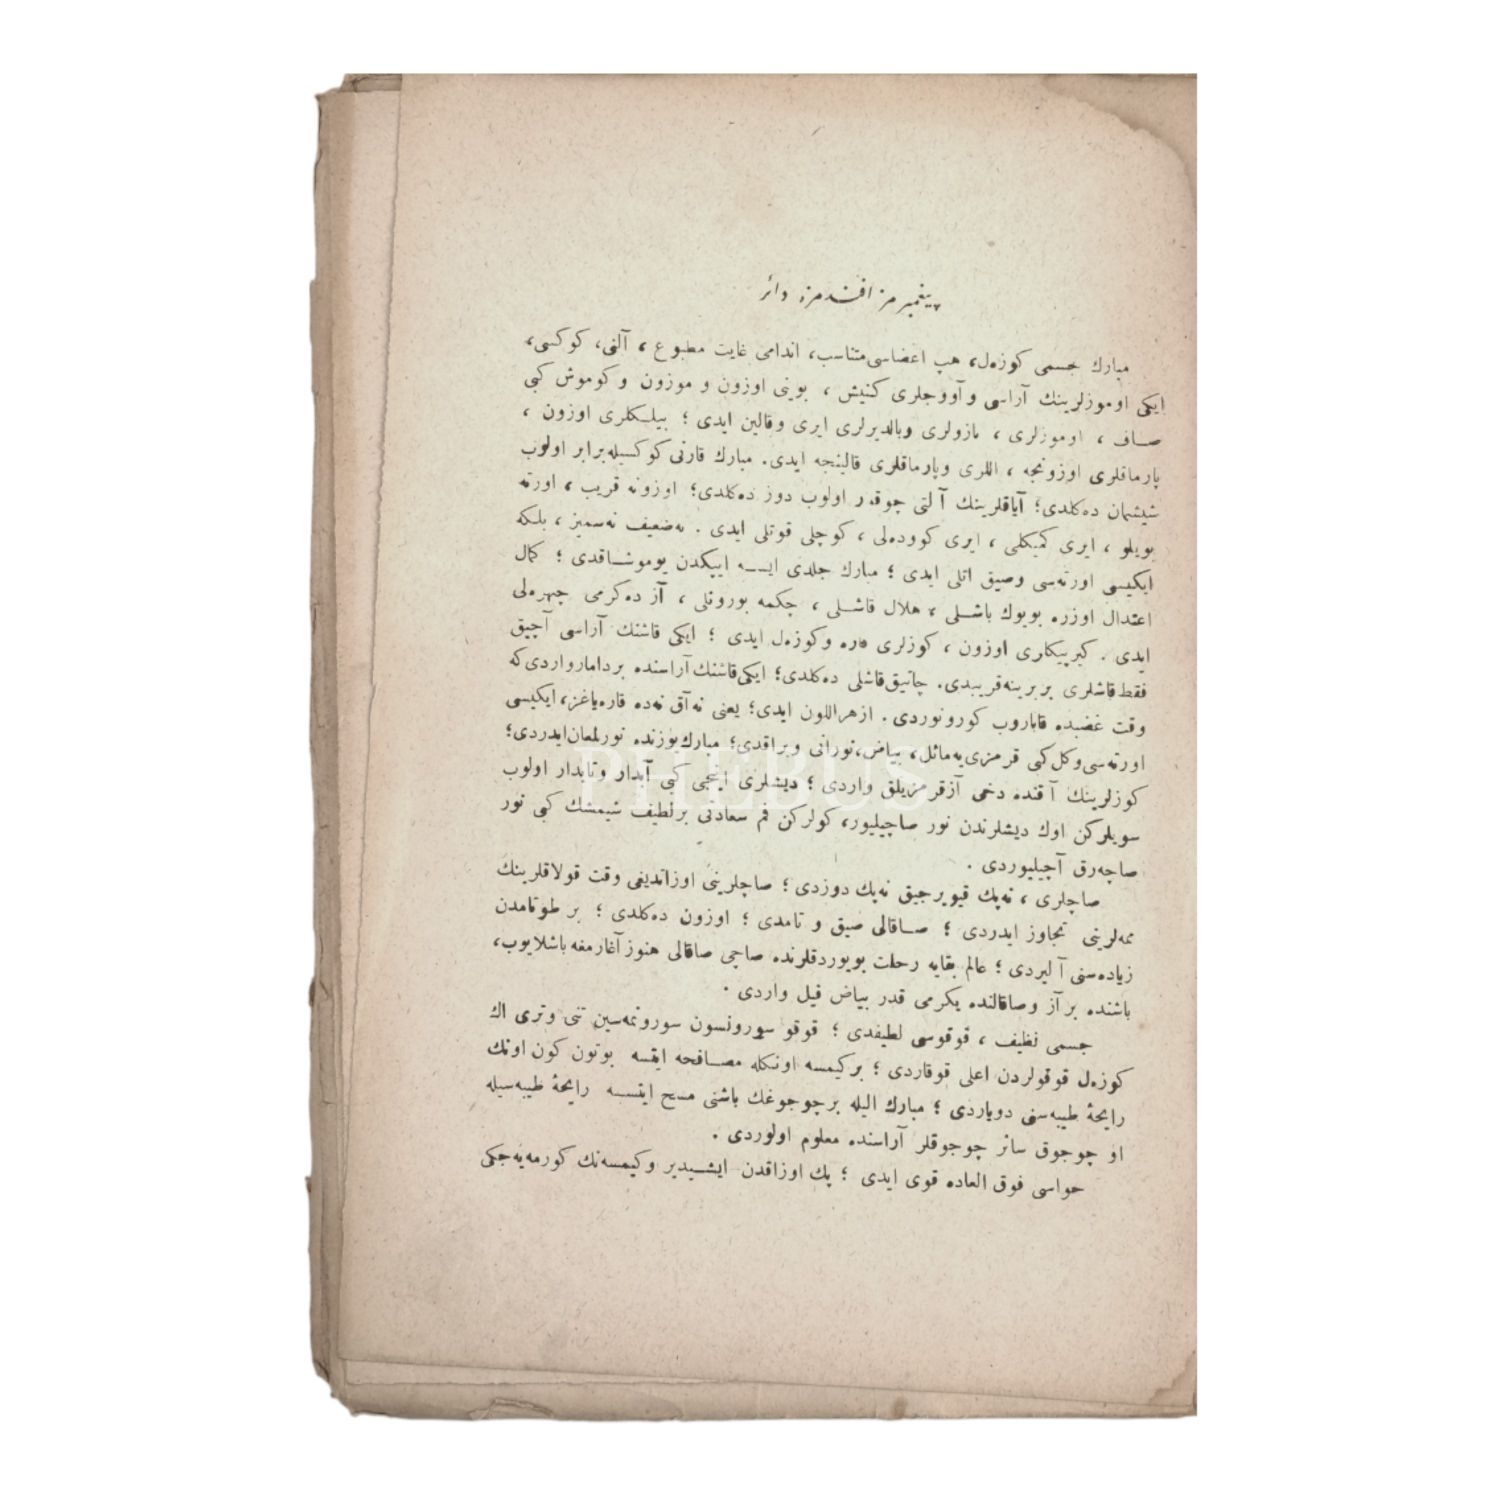 پیغمبرمز افندمزه دائر
مبارك جسمی كوزه‌ل، هپ اعضاسی متناسب، اندامی غایت مطبوع ، آلنی، كوكسی،
ایكی اوموزلرینك آراسی و آووجلری كنیش ، بوینی اوزون و موزون و كوموش كبی
صاف ، اوموزلری ، بازولری وبالدیرلری ایری وقالین ایدی ؛ بیلكلری اوزون ،
پارماقلری اوزونجه ، اللری وپارماقلری قالینجه ایدی. مبارك قارنی كوكسیله برابر اولوب
شیشمان ده‌كلدی؛ آیاقلرینك آلتی چوقور اولوب دوز ده‌كلدی؛ اوزونه قریب ، اورته
بویلو ، ایری كمیكلی ، ایری كووده‌لی ، كوچلی قوتلی ایدی . نه‌ضعیف نه‌سمیز ، بلكه
ایكیسی اورته‌سی وصیق اتلی ایدی ؛ مبارك جلدی ایسه ایپكدن یوموشاقدی ؛ كمال
اعتدال اوزره بویوك باشلی ، هلال قاشلی ، چكمه بورونلی ، آز ده‌كرمی چهره‌لی
ایدی . كیرپیكلری اوزون ، كوزلری قاره وكوزه‌ل ایدی ؛ ایكی قاشنك آراسی آچیق
فقط قاشلری بربرینه‌قریبدی. چاتیق‌قاشلی ده‌كلدی؛ ایكی‌قاشنك آراسنده بردامارواردی‌كه
وقت غضبده قاباروب كورونوردی . ازهراللون ایدی؛ یعنی نه‌آق نه‌ده قاره‌یاغز، ایكیسی
اورته‌سی‌وكل‌كبی قرمزی‌یه‌مائل، بیاض،نورانی وبراقدی؛ مبارك‌یوزنده نورلمعان‌ایدردی؛
كوزلرینك آقنده دخی آزقرمزیلق واردی ؛ دیشلری اینجی كبی آبدار وتابدار اولوب
سویلركن اوك دیشلرندن نور صاچیلیور، كولركن فم سعادتی برلطیف شیمشك كبی نور
صاچه‌رق آچیلیوردی .
صاچلری ، نه‌پك قیویرجیق نه‌پك دوزدی ؛ صاچلرینی اوزاتدیغی وقت قولاقلرینك
ممه‌لرینی تجاوز ایدردی ؛ صاقالی صیق و تامدی ؛ اوزون ده‌كلدی ؛ بر طوتامدن
زیاده‌سنی آلیردی ؛ عالم بقایه رحلت بویوردقلرنده صاچی صاقالی هنوز آغارمغه باشلایوب،
باشنده بر آز وصاقالنده یكرمی قدر بیاض قیل واردی .
جسمی نظیف ، قوقوسی لطیفدی ؛ قوقو سورونسون سورونمه‌سین تنی وتری اك
كوزه‌ل قوقولردن اعلی قوقاردی ؛ بركیمسه اونكله مصافحه ایتسه بوتون كون اونك
رایحهٔ طیبه‌سنی دویاردی ؛ مبارك الیله برچوجوغك باشنی مسح ایتسه رایحهٔ طیبه‌سیله
او چوجوق سائر چوجوقلر آراسنده معلوم اولوردی .
حواسی فوق العاده قوی ایدی ؛ پك اوزاقدن ایشیدیر وكیمسه‌نك كورمه‌یه‌جكی
PHEBUS